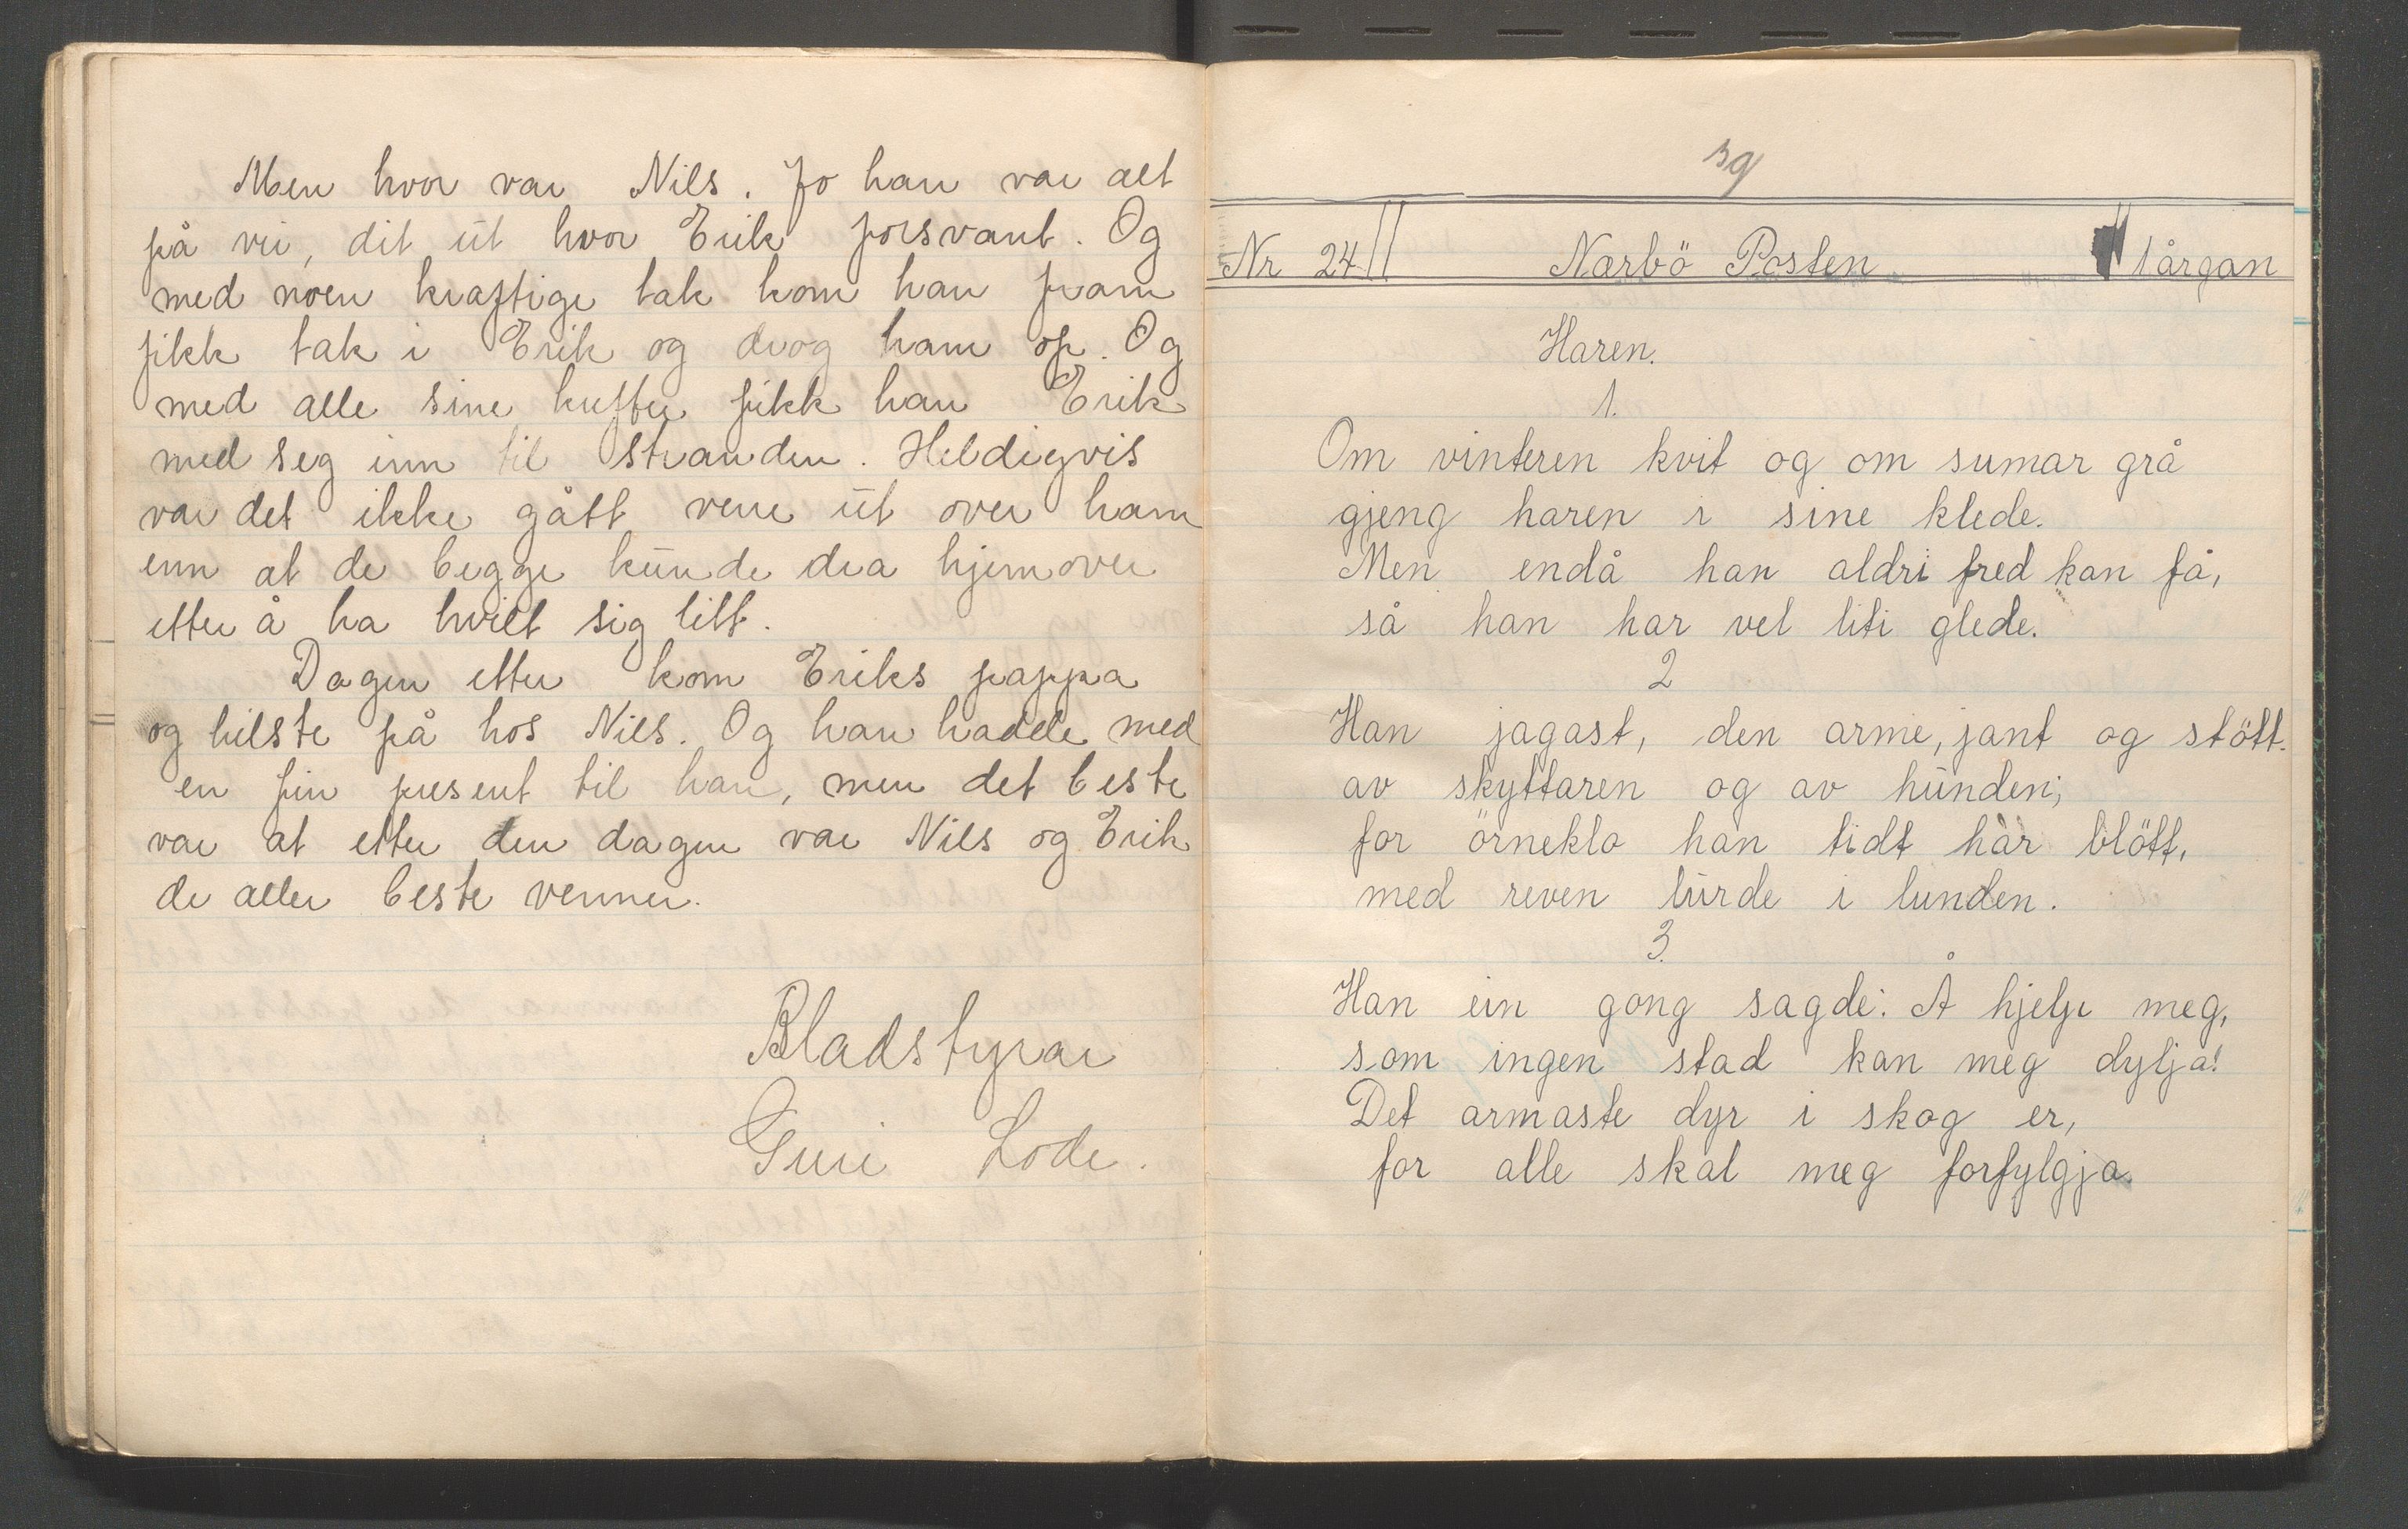 Men hvor var Nils. Jo han var alt
på vei, dit ut hvor Erik forsvant. Og
med noen kraftige tak kom han fram
fikk tak i Erik og drog ham op. Og
med alle sine krefter fikk han Erik
med seg inn til stranden. Heldigvis
var det ikke gått verre ut over ham
enn at de begge kunde dra hjemover
etter å ha hvilt sig litt.
Dagen etter kom Eriks pappa
og hilste på hos Nils. Og han hadde med
en fin present til han, men det beste
var at etter den dagen var Nils og Erik
de aller beste venner.
Bladstyrar
Guri Lode.
39
Nr 24 Nærbö Posten 1 årgan
Haren.
1.
Om vinteren kvit og om sumar grå
gjeng haren i sine klede.
Men endå han aldri fred kan få,
så han har vel liti glede.
2
Han jagast, den arme, jant og stött.
av skyttaren og av hunden;
for örneklo han tidt har blött,
med reven lurde i lunden.
3.
Han ein gong sagde: Å hjelp meg,
som ingen stad kan meg dylja!
Det armaste dyr i skog er,
for alle skal meg forfylgja.